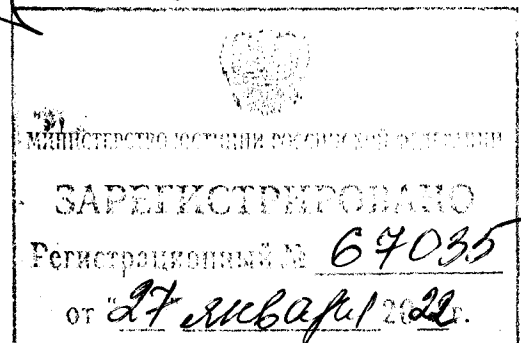 МИНИСТЕРСТВО ЮСТИЦИИ РОССИЙСКОЙ ФЕДЕРАЦИИ
ЗАРЕГИСТРИРОВАНО
Регистрационный № 67035
от "27 января 2022г.